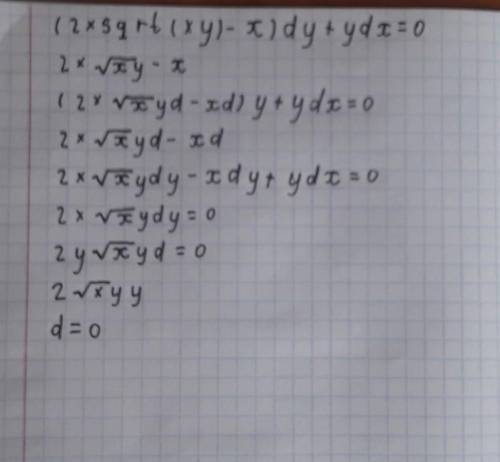 (2×sqrt(xy)-x)dy+ydx=0
2×√xy-x
(2×√xyd-xd)y+ydx=0
2×√xyd-xd
2×√xydy-xdy+ydx=0
2×√xydy=0
2y√xyd=0
2√xyy
d=0